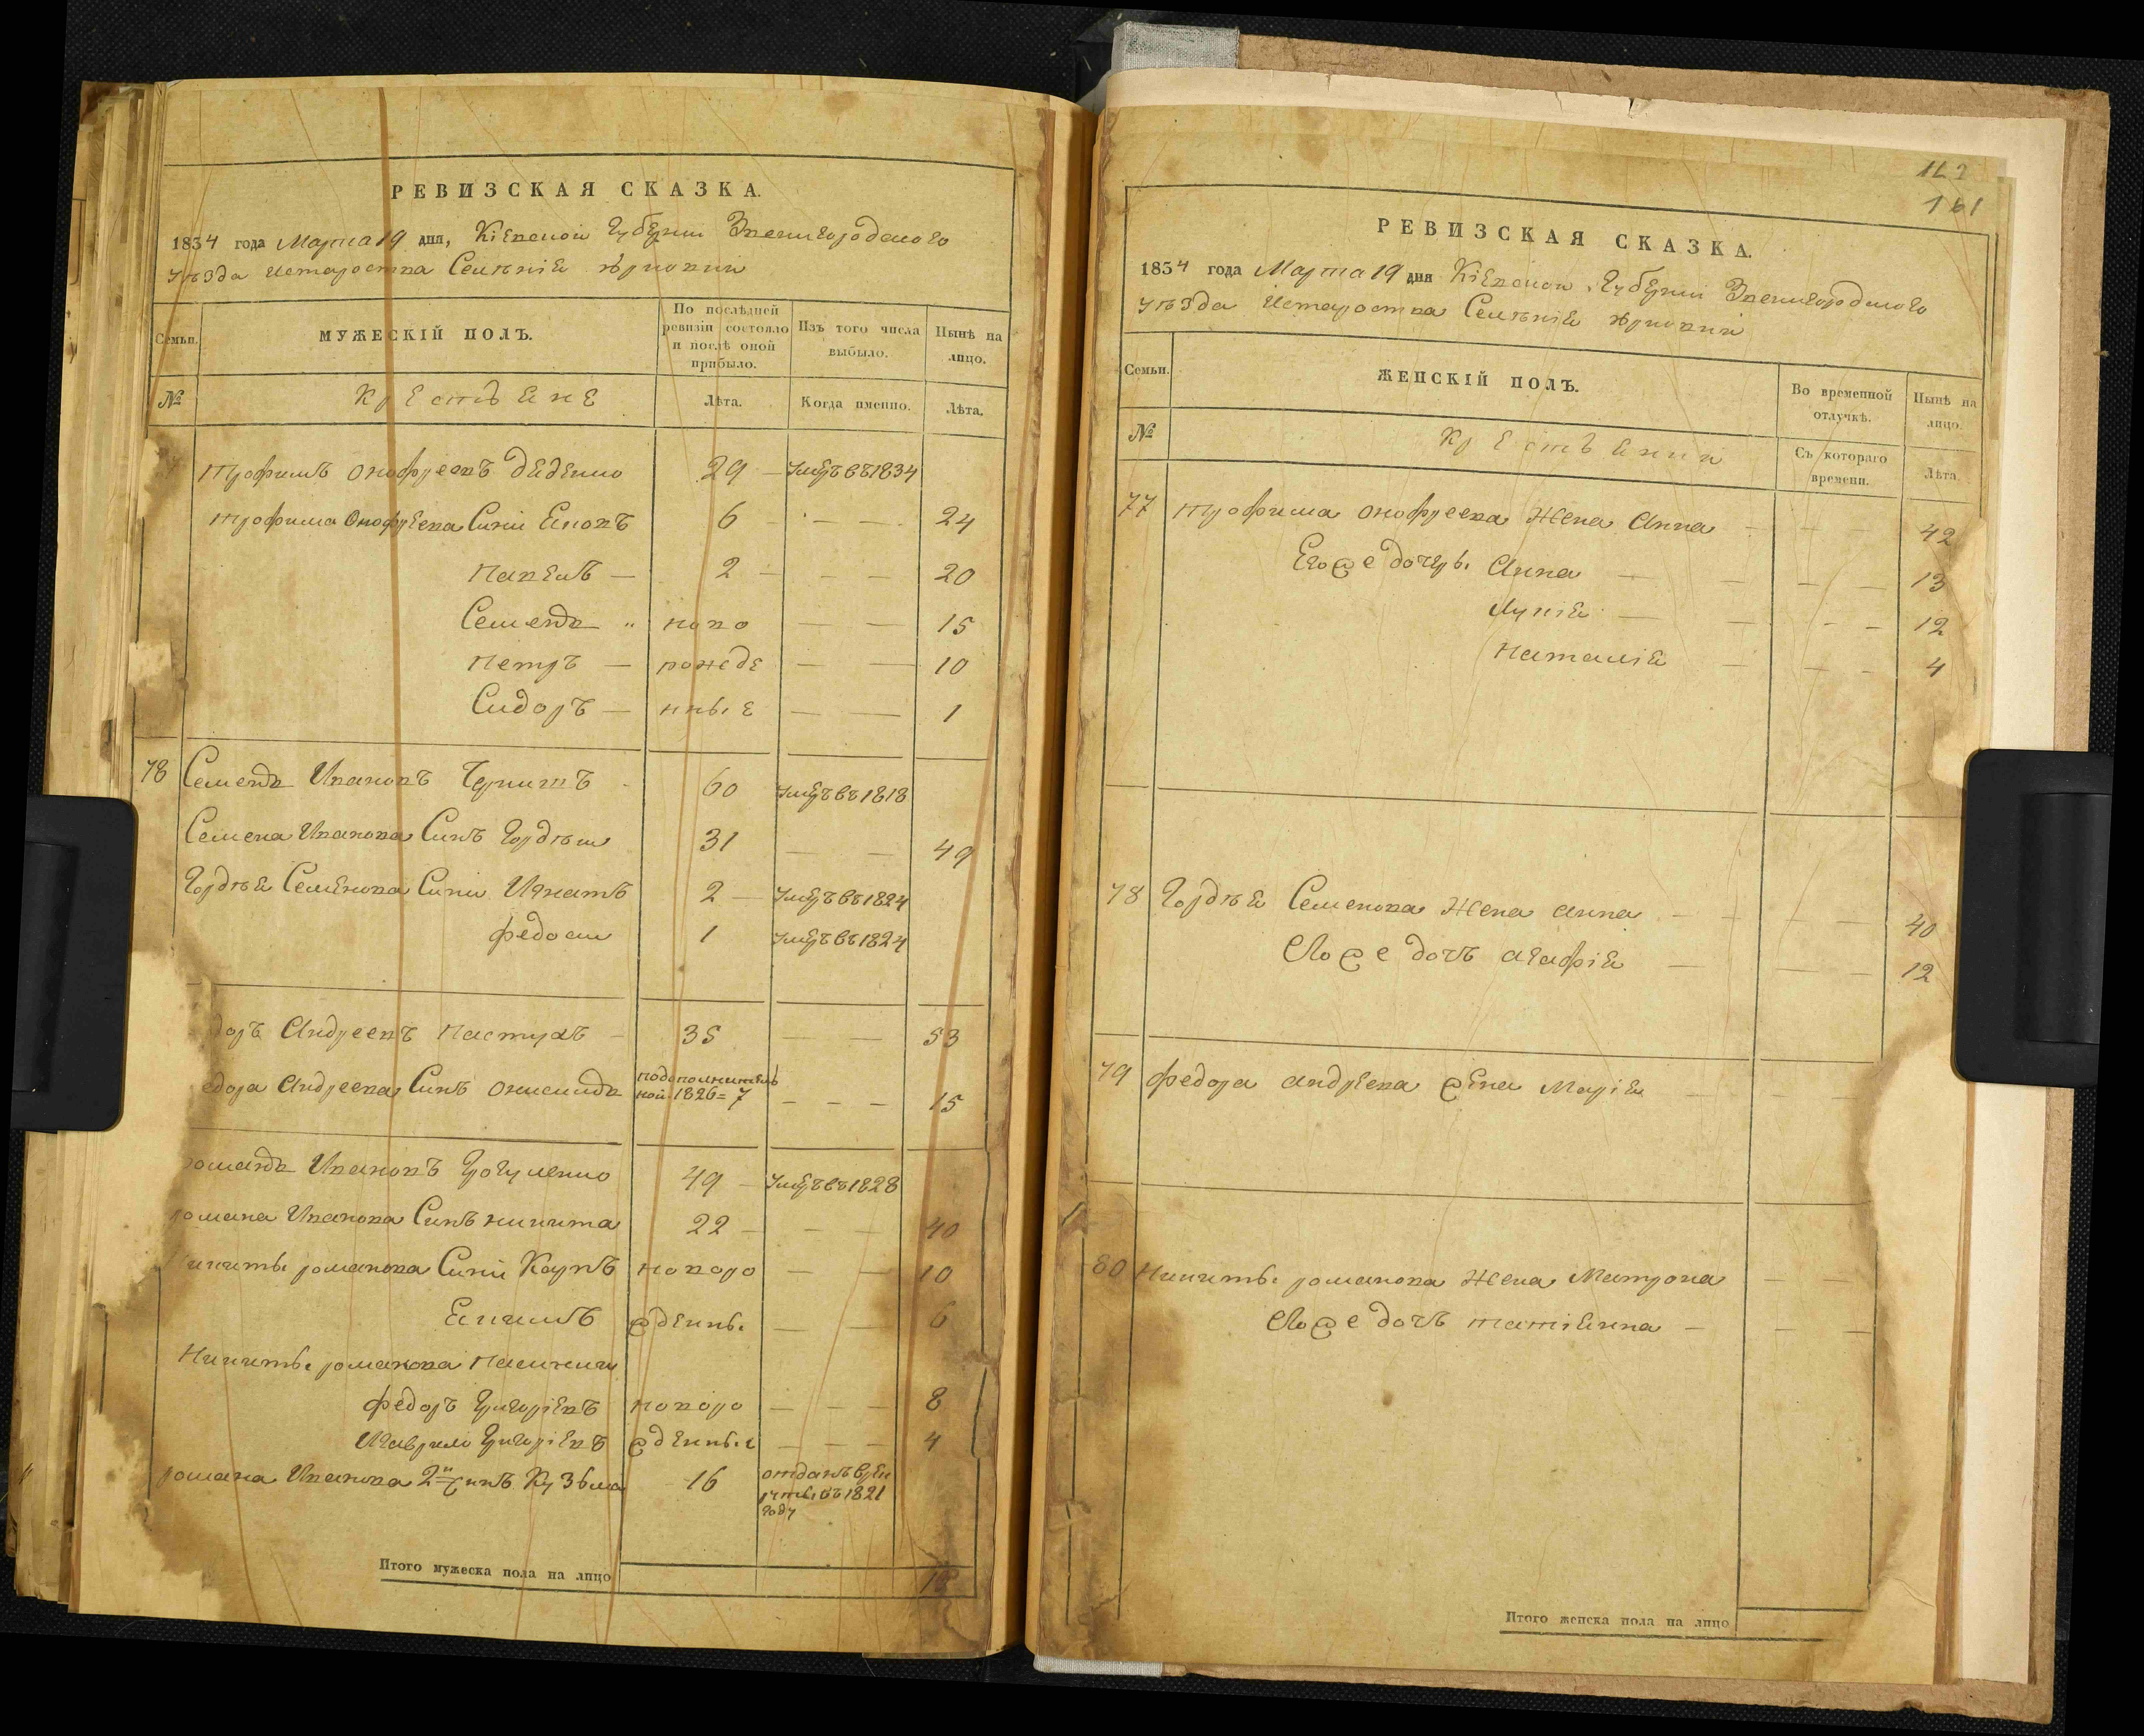 РЕВИЗСКАЯ СКАЗКА.
1834 года Марта 19 дня, Кіевской Губерніи Звенигородского
уѣзда Староства Селѣнія
Семьи. МУЖЕСКІЙ ПОЛЪ. По послѣдней ревизіи состояло и послѣ оной прибыло. Изъ того числа выбыло. Нынѣ на лицо.
№ Крестьяне Лѣта. Когда именно. Лѣта.
Трофимъ Онофреевъ Деденко 29 — умеръ въ 1834
Трофима Онофреева Сини Яковъ 6 — — — 24
Павелъ — 2 — — — 20
Семенъ " ново — — 15
Петръ — рожде — — 10
Сидоръ — нные — — 1
78 Семенъ Ивановъ 60 умеръ въ 1818
Семена Иванова Синъ Гордѣй 31 — — 49
Гордѣя Семенова Сини Игнатъ 2 — умеръ въ 1824
Федосій 1 умеръ въ 1824
доръ Андреевъ Пастухъ — 35 — — 53
едора Андреева Синъ Онисимъ по дополнитель
ной 1826 = 7 — — — 15
романъ Ивановъ 49 — умеръ въ 1828
романа Иванова Синъ Никита 22 — — — 40
икиты романова Сини Карпъ новоро — — 10
Якимъ жденны — — 6
Никиты романова Пасинки
Федоръ Григоріевъ новоро — — — 8
Гаврило Григоріевъ жденные — — — 4
романа Иванова 2й Синъ Кузьма 16 отданъ в рек
руты въ 1821
году
Итого мужеска пола на лицо 18
162
161
РЕВИЗСКАЯ СКАЗКА.
1834 года Марта 19 дня Кіевской Губерніи Звенигородского
уѣзда Староства Селѣнія
Семьи. ЖЕНСКІЙ ПОЛЪ. Во временной отлучкѣ. Нынѣ на лицо.
№ Крестьянки Съ котораго времени. Лѣта.
77 Трофима Онофреева Жена Анна — — — 42
Его же дочеры Анна — — — — 13
— — - — 12
Наталія — — - 4
78 Гордѣя Семенова Жена Анна — - — — 40
Его же дочъ Агафія — — — 12
79 Федора Андреева жена Марія — — —
80 Никиты романова Жена Матрона — —
Его же дочъ Татіянна — — —
Итого женска пола на лицо